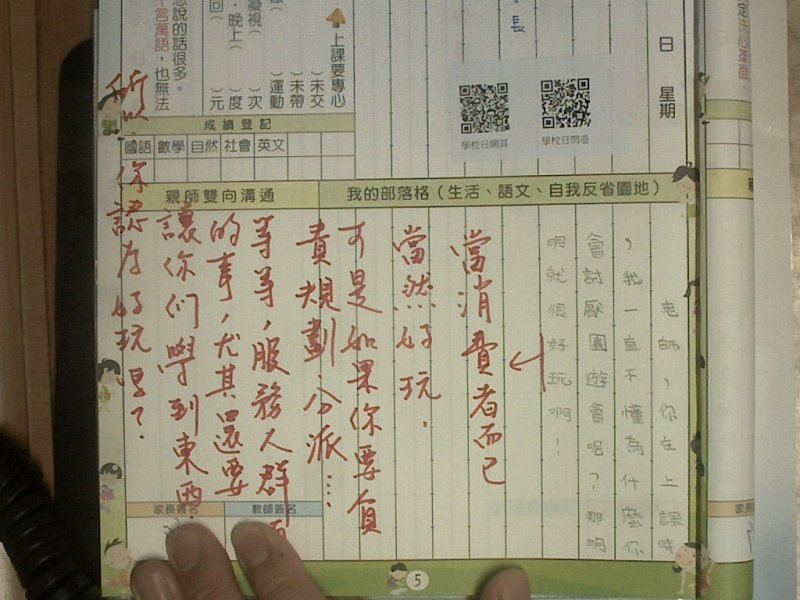 日 星期
長
定洗心革面
想說的話很多。
千言萬語，也無法
上課要專心
)未交
)未帶
)運動
)次
)度
)元
凝視(
晚上(
回(
學校日網頁
學校日問卷
成績登記
國語 數學 自然 社會 英文
親師雙向溝通
我的部落格(生活、語文、自我反省園地)
老師，你在上課時
，我一直不懂為什麼你
會討厭園遊會呢？那明
明就很好玩啊！
當消費者而已
當然好玩．
可是如果你要負
責規劃分派……
等等，服務人群
的事，尤其還要
讓你們學到東西．
所以．你認為好玩嗎？
家長簽名
教師簽名
5